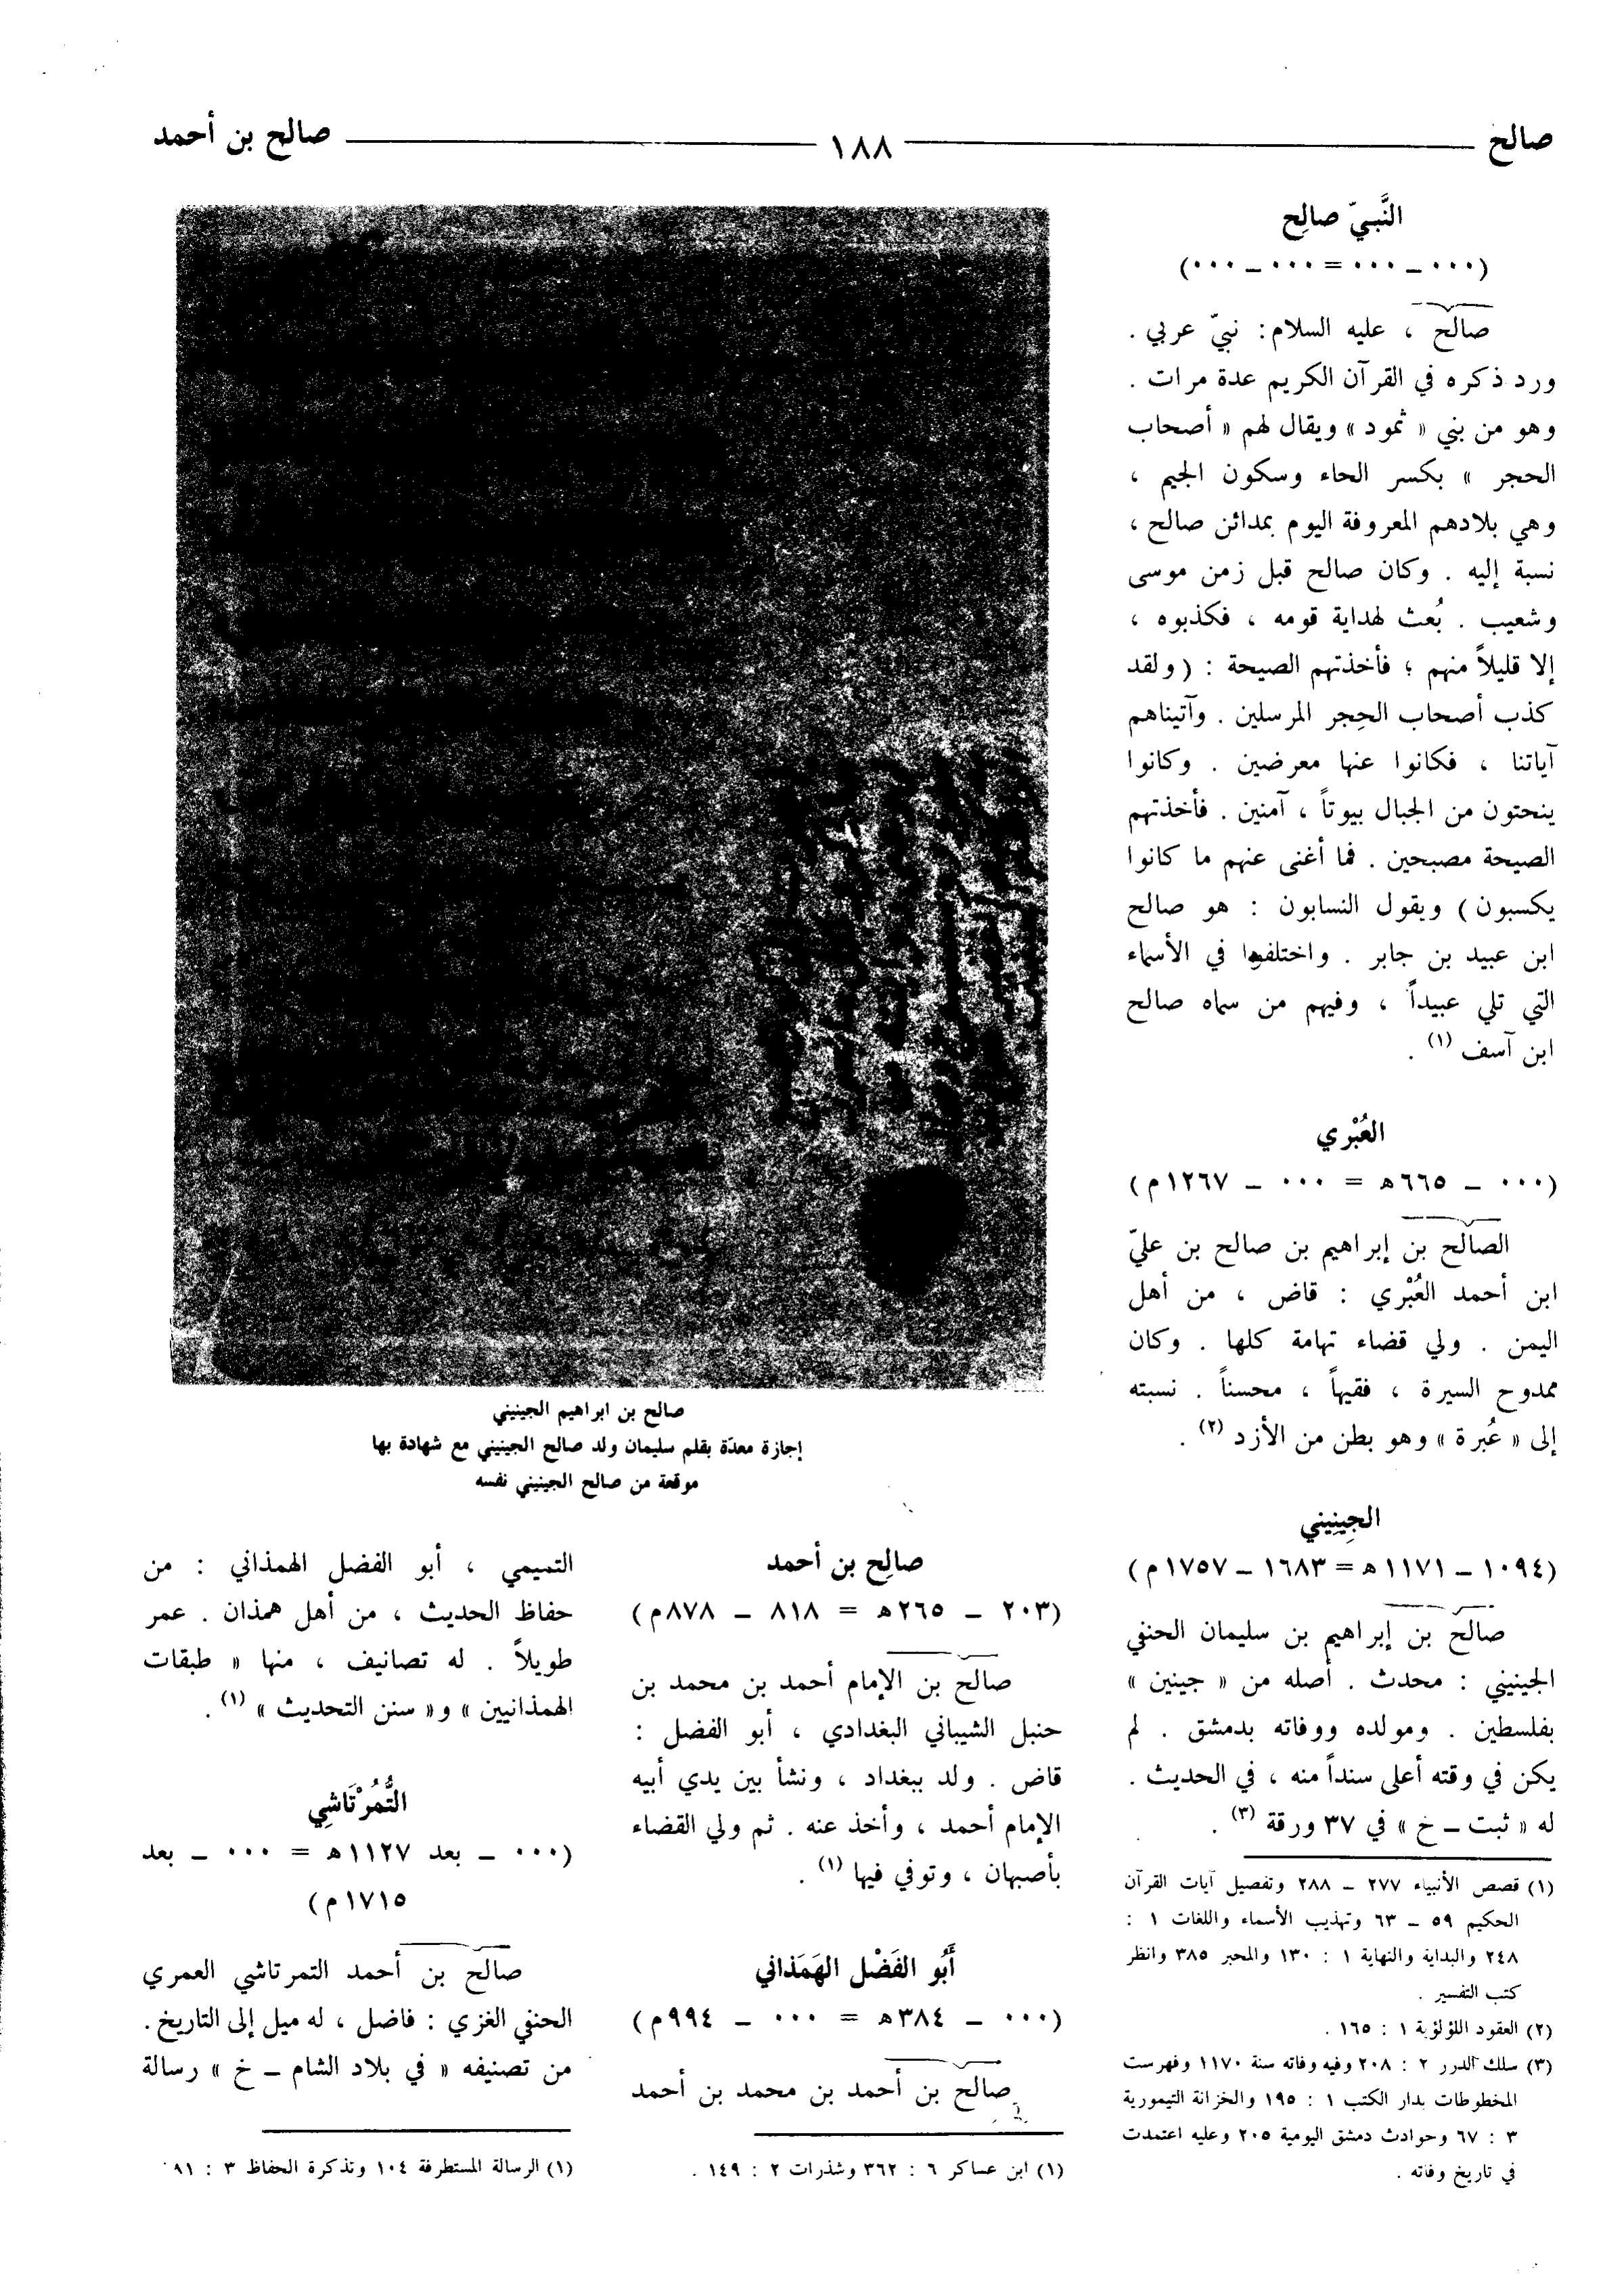 صالح ١٨٨ صالح بن أحمد
النَّبيّ صالِح
(٠٠٠ ــ ٠٠٠ = ٠٠٠ ــ ٠٠٠)
صالح ، عليه السلام : نبيّ عربي .
ورد ذكره في القرآن الكريم عدة مرات .
وهو من بني « ثمود » ويقال لهم « أصحاب
الحجر » بكسر الحاء وسكون الجيم ،
وهي بلادهم المعروفة اليوم بمدائن صالح ،
نسبة إليه . وكان صالح قبل زمن موسى
وشعيب . بُعث لهداية قومه ، فكذبوه ،
إلا قليلاً منهم ؛ فأخذتهم الصيحة : ( ولقد
كذب أصحاب الحِجر المرسلين . وآتيناهم
آياتنا ، فكانوا عنها معرضين . وكانوا
ينحتون من الجبال بيوتاً ، آمنين . فأخذتهم
الصيحة مصبحين . فما أغنى عنهم ما كانوا
يكسبون ) ويقول النسابون : هو صالح
ابن عبيد بن جابر . واختلفوا في الأسماء
التي تلي عبيداً ، وفيهم من سماه صالح
ابن آسف (١) .
العُبْري
(٠٠٠ ــ ٦٦٥ هـ = ٠٠٠ ــ ١٢٦٧ م)
الصالح بن إبراهيم بن صالح بن عليّ
ابن أحمد العُبْري : قاض ، من أهل
اليمن . ولي قضاء تهامة كلها . وكان
ممدوح السيرة ، فقيهاً ، محسناً . نسبته
إلى « عُبرة » وهو بطن من الأزد (٢) .
الجِينِيني
(١٠٩٤ ــ ١١٧١ هـ = ١٦٨٣ ــ ١٧٥٧ م)
صالح بن إبراهيم بن سليمان الحنفي
الجينيني : محدث . أصله من « جينين »
بفلسطين . ومولده ووفاته بدمشق . لم
يكن في وقته أعلى سنداً منه ، في الحديث .
له « ثبت ــ خ » في ٣٧ ورقة (٣) .
(١) قصص الأنبياء ٢٧٧ ــ ٢٨٨ وتفصيل آيات القرآن
الحكيم ٥٩ ــ ٦٣ وتهذيب الأسماء واللغات ١ :
٢٤٨ والبداية والنهاية ١ : ١٣٠ والمحبر ٣٨٥ وانظر
كتب التفسير .
(٢) العقود اللؤلؤية ١ : ١٦٥ .
(٣) سلك الدرر ٢ : ٢٠٨ وفيه وفاته سنة ١١٧٠ وفهرست
المخطوطات بدار الكتب ١ : ١٩٥ والخزانة التيمورية
٣ : ٦٧ وحوادث دمشق اليومية ٢٠٥ وعليه اعتمدت
في تاريخ وفاته .
صالح بن ابراهيم الجينيني
إجازة معدّة بقلم سليمان ولد صالح الجينيني مع شهادة بها
موقعة من صالح الجينيني نفسه
صالِح بن أحمد
(٢٠٣ ــ ٢٦٥ هـ = ٨١٨ ــ ٨٧٨ م)
صالح بن الإمام أحمد بن محمد بن
حنبل الشيباني البغدادي ، أبو الفضل :
قاض . ولد ببغداد ، ونشأ بين يدي أبيه
الإمام أحمد ، وأخذ عنه . ثم ولي القضاء
بأصبهان ، وتوفي فيها (١) .
أَبُو الفَضْل الهَمَذاني
(٠٠٠ ــ ٣٨٤ هـ = ٠٠٠ ــ ٩٩٤ م)
صالح بن أحمد بن محمد بن أحمد
(١) ابن عساكر ٦ : ٣٦٢ وشذرات ٢ : ١٤٩ .
التميمي ، أبو الفضل الهمذاني : من
حفاظ الحديث ، من أهل همذان . عمر
طويلاً . له تصانيف ، منها « طبقات
الهمذانيين » و « سنن التحديث » (١) .
التُّمُرْتَاشِي
(٠٠٠ ــ بعد ١١٢٧ هـ = ٠٠٠ ــ بعد
١٧١٥ م)
صالح بن أحمد التمرتاشي العمري
الحنفي الغزي : فاضل ، له ميل إلى التاريخ .
من تصنيفه « في بلاد الشام ــ خ » رسالة
(١) الرسالة المستطرفة ١٠٤ وتذكرة الحفاظ ٣ : ٨١